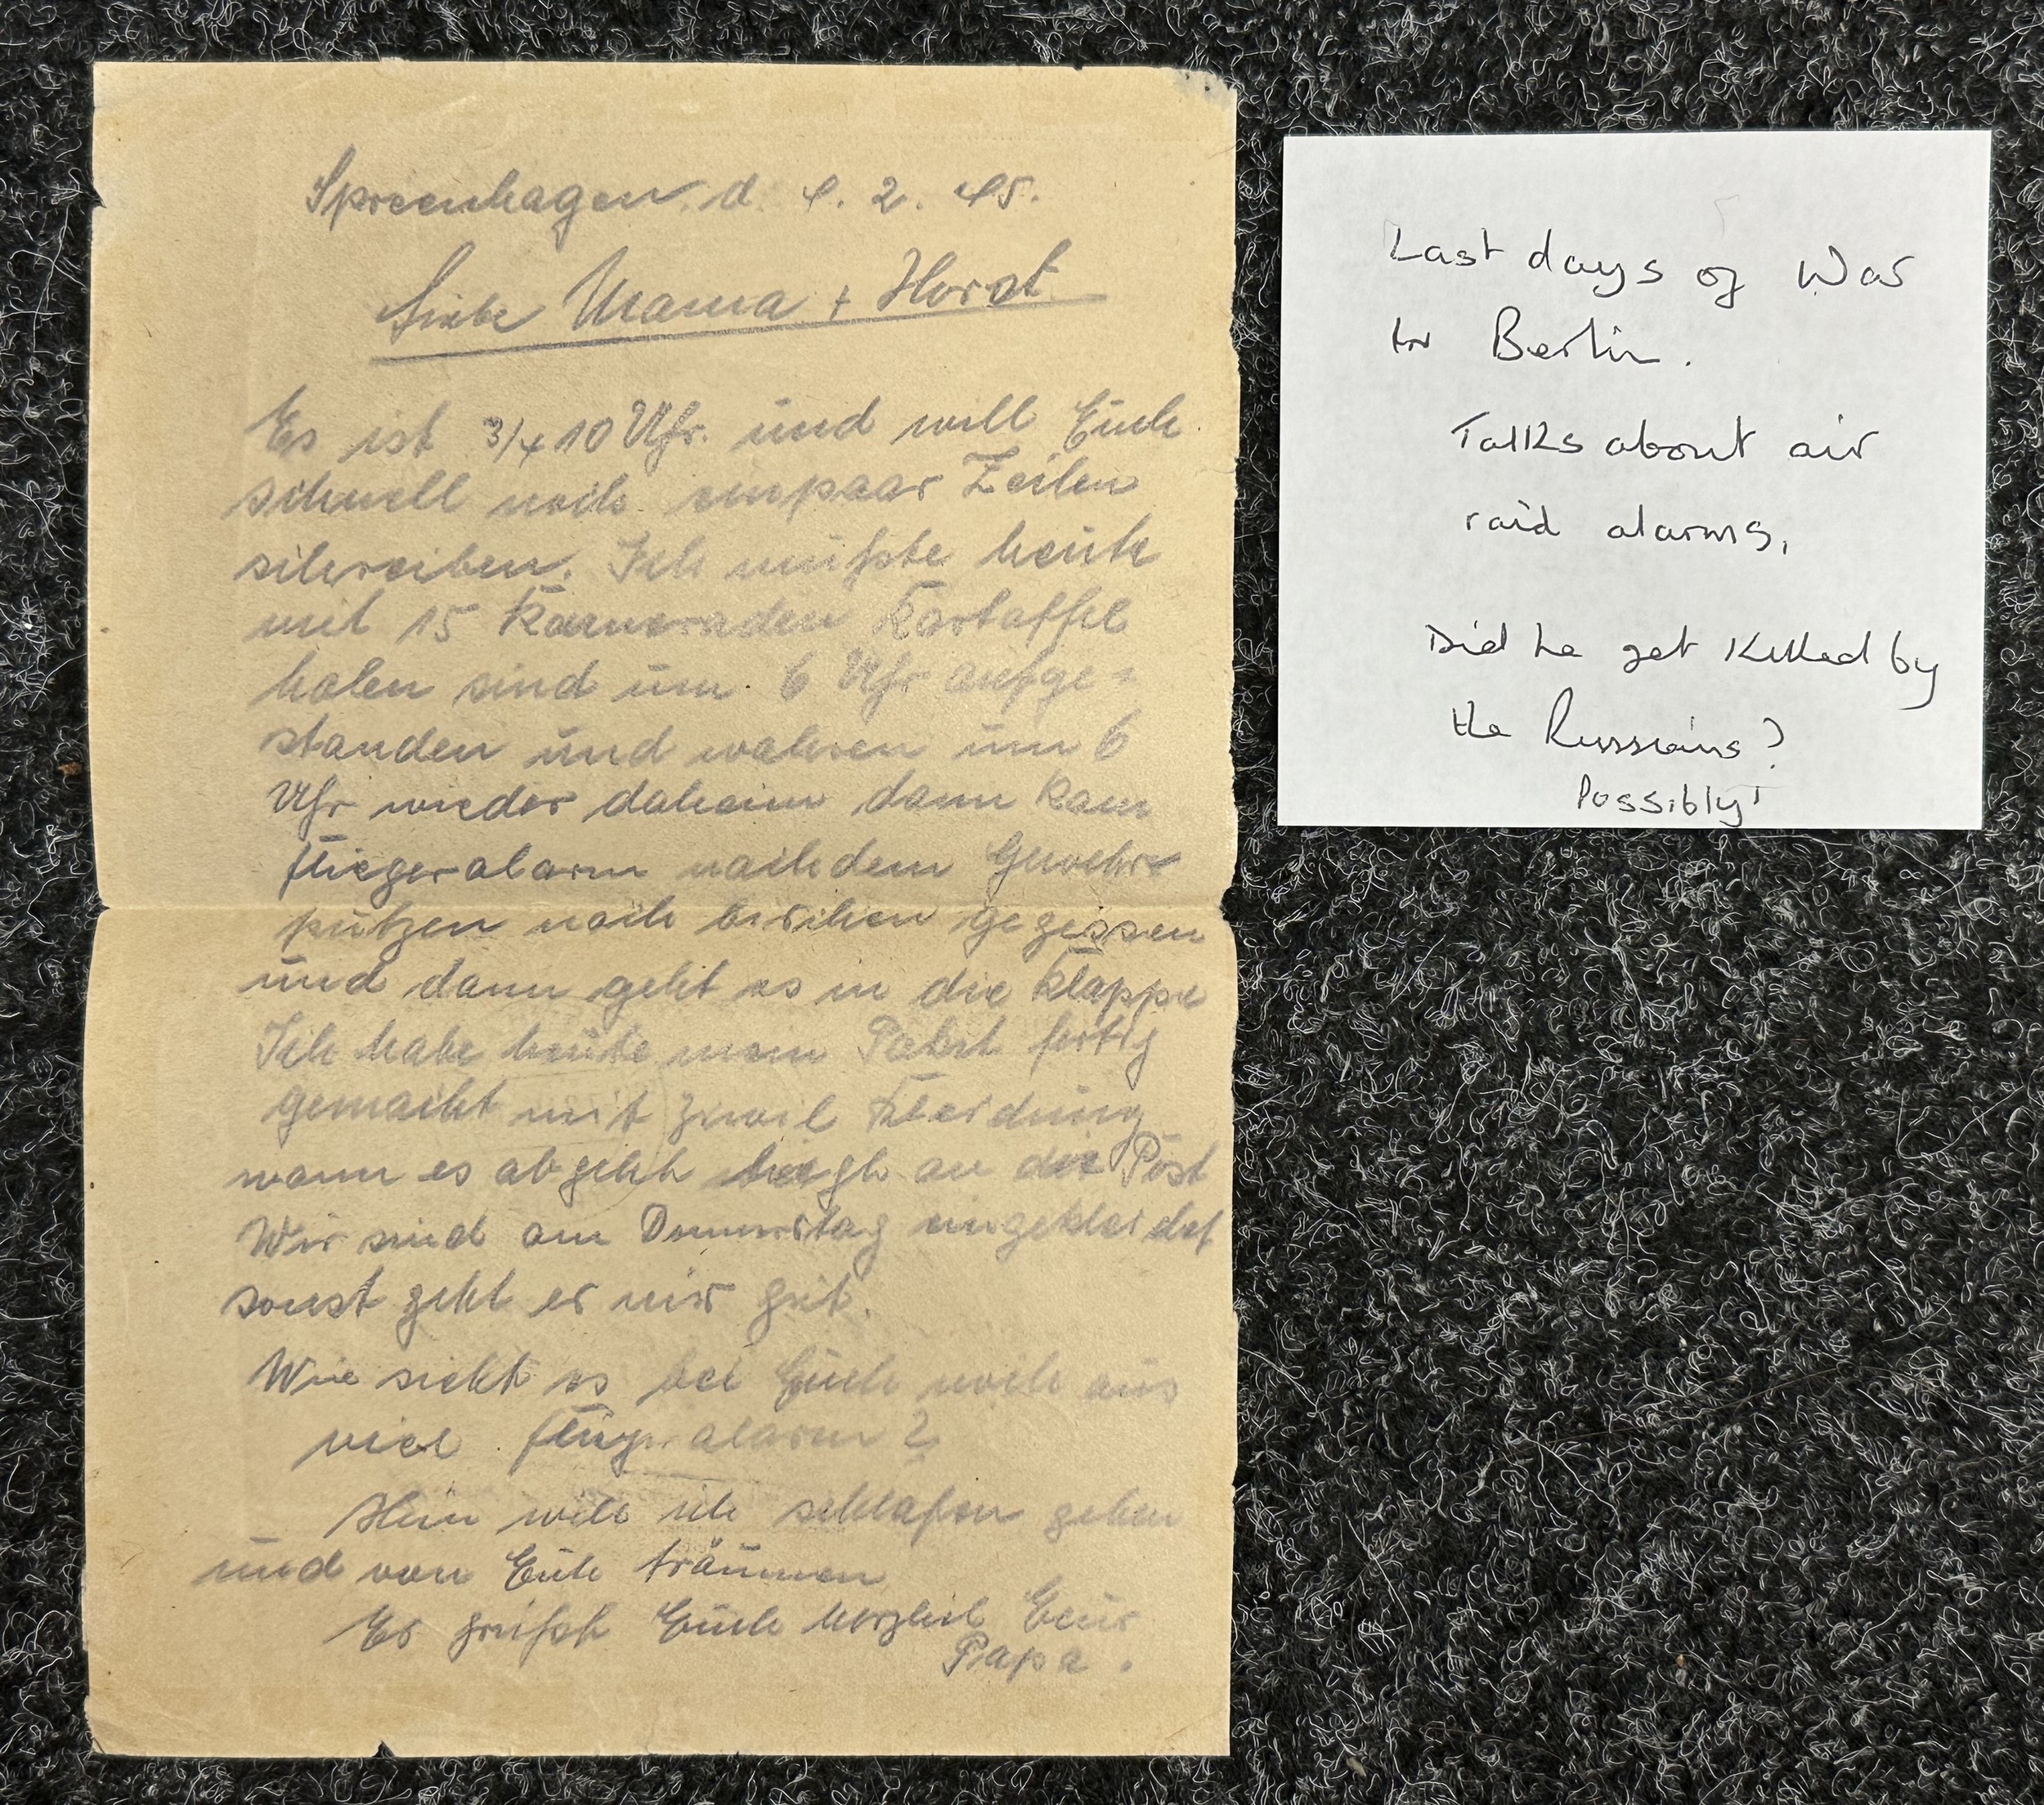 Spreenhagen. d. 4. 2. 45.
Liebe Mama + Horst
Es ist 3/4 10 Uhr. und will Euch
schnell noch einpaar Zeilen
schreiben. Ich mußte heute
mit 15 Kameraden Kartoffel
holen sind um 6 Uhr aufge=
standen und wahren um 6
Uhr wieder daheim dann kam
Fliegeralarm nachdem Gewehr
putzen noch bischen gegessen
und dann geht es in die Klappe
Ich habe heute mein Paket fertig
gemacht mit Zivil Kleidung
wann es abgeht liegt an die Post
Wir sind am Donnerstag eingekleidet
sonst geht es mir gut.
Wie sieht es bei Euch noch aus
viel Fliegeralarm?
Nun will ich schlafen gehen
und von Euch träumen
Es grüßt Euch herzlich Euer
Papa.
Last days of War
in Berlin.
Talks about air
raid alarms,
Did he get killed by
the Russians?
Possibly!